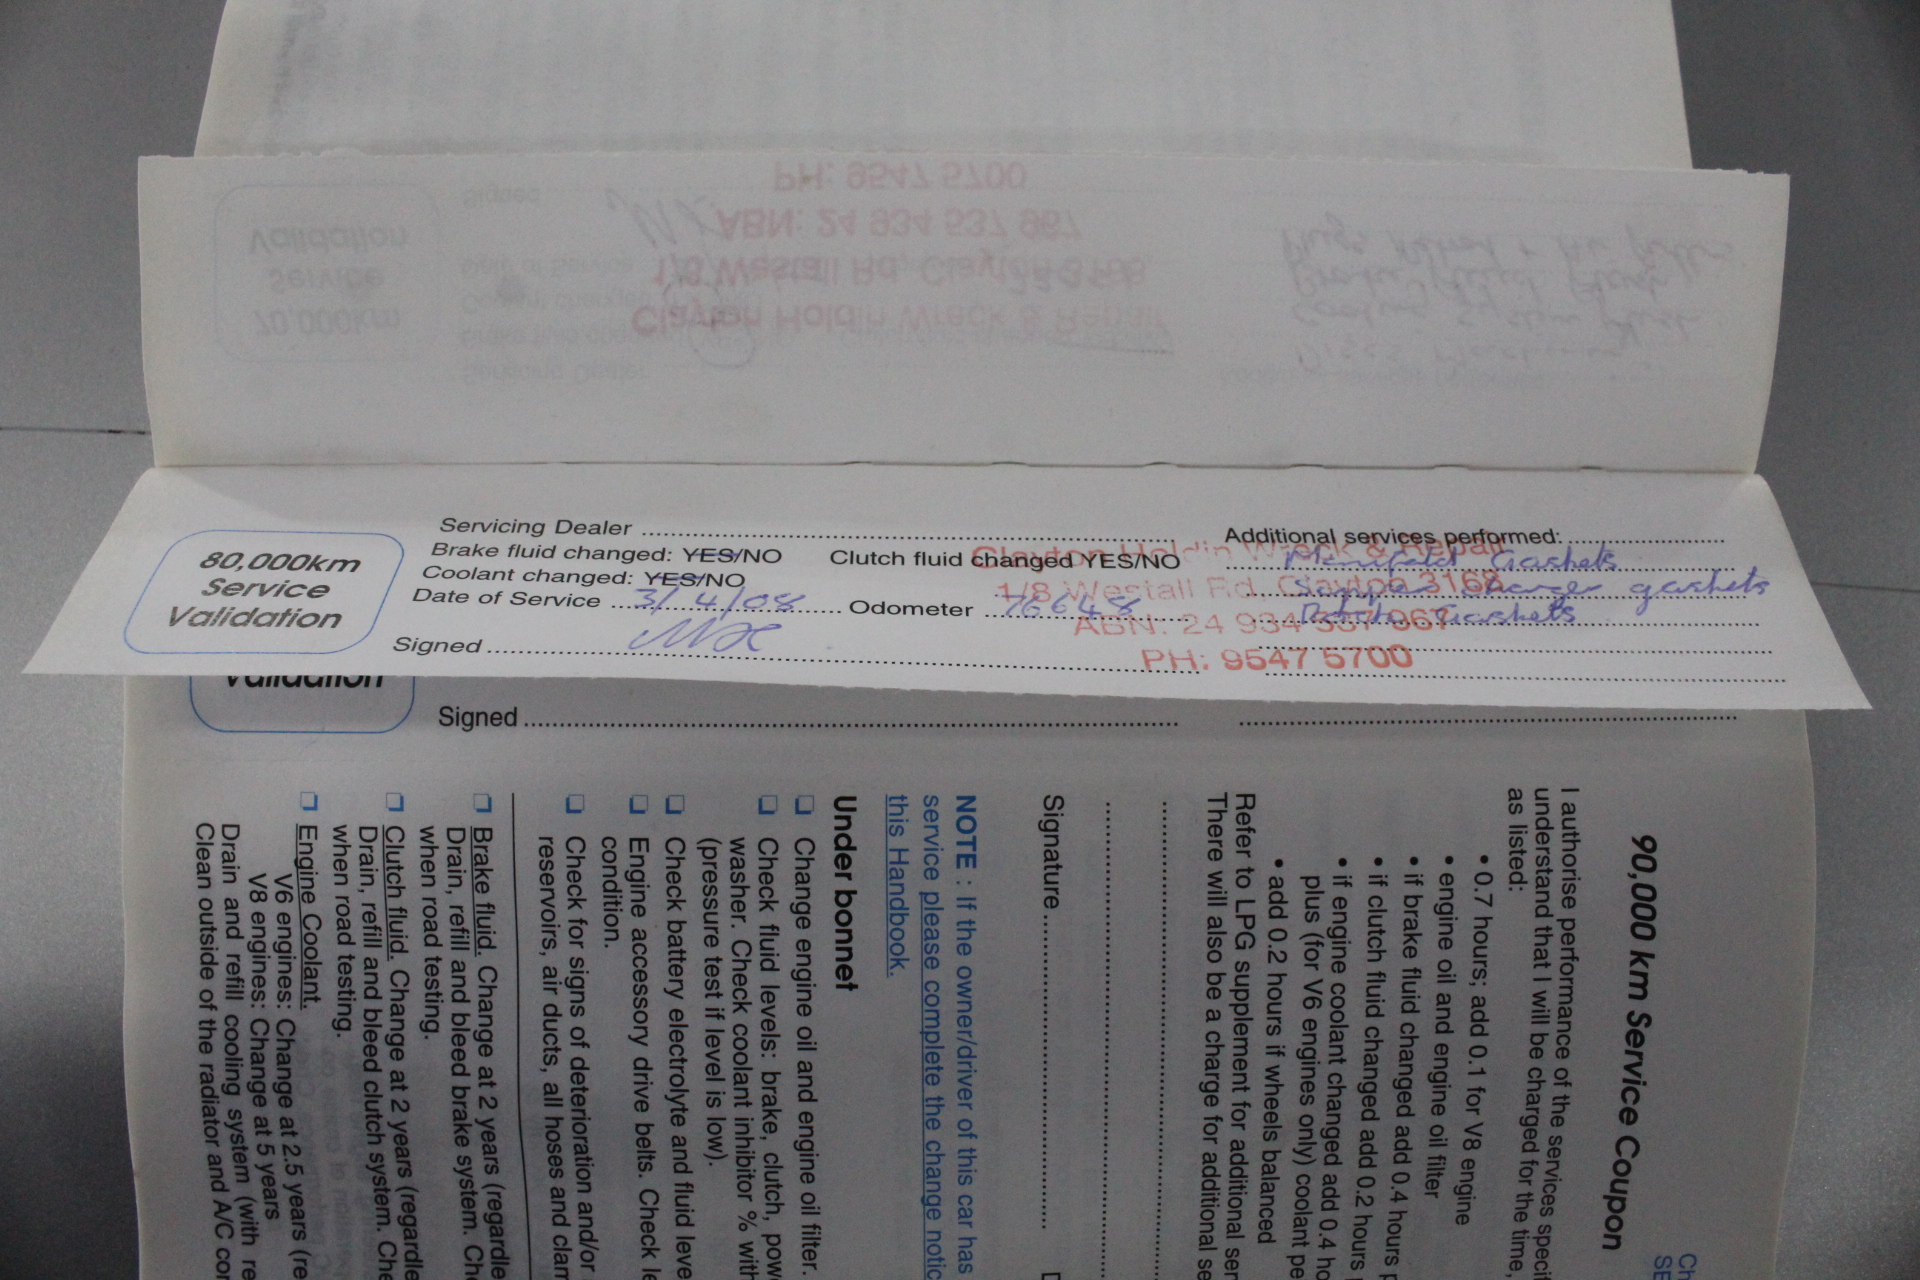 PH: 9547 5700
ABN: 24 934 537 967
1/8 Westall Rd, Clayton 3168
Clayton Holdin Wreck & Repair
Validation
Service
70,000km
Signed
Date of Service
Servicing Dealer
80,000km
Service
Validation
Servicing Dealer
Brake fluid changed: YES/NO Clutch fluid changed YES/NO
Coolant changed: YES/NO
Date of Service 3/4/08 Odometer 76648
Signed
Additional services performed:
Manifold Gaskets
Super Charger gaskets
Gaskets
Clayton Holdin Wreck & Repair
1/8 Westall Rd, Clayton 3168
ABN: 24 934 537 967
PH: 9547 5700
Validation
Signed
90,000 km Service Coupon
I authorise performance of the services
understand that I will be charged for the time,
as listed:
• 0.7 hours; add 0.1 for V8 engine
• engine oil and engine oil filter
• if brake fluid changed add 0.4 hours
• if clutch fluid changed add 0.2 hours
• if engine coolant changed add 0.4
plus (for V6 engines only) coolant
• add 0.2 hours if wheels balanced
Refer to LPG supplement for additional
There will also be a charge for additional
Signature
NOTE : If the owner/driver of this car has
service please complete the change
this Handbook.
Under bonnet
❏ Change engine oil and engine oil filter.
❏ Check fluid levels: brake, clutch,
washer. Check coolant inhibitor % with
(pressure test if level is low).
❏ Check battery electrolyte and fluid
❏ Engine accessory drive belts. Check
condition.
❏ Check for signs of deterioration and/or
reservoirs, air ducts, all hoses and
❏ Brake fluid. Change at 2 years
Drain, refill and bleed brake system.
when road testing.
❏ Clutch fluid. Change at 2 years
Drain, refill and bleed clutch system.
when road testing.
❏ Engine Coolant.
V6 engines: Change at 2.5 years
V8 engines: Change at 5 years
Drain and refill cooling system (with
Clean outside of the radiator and A/C